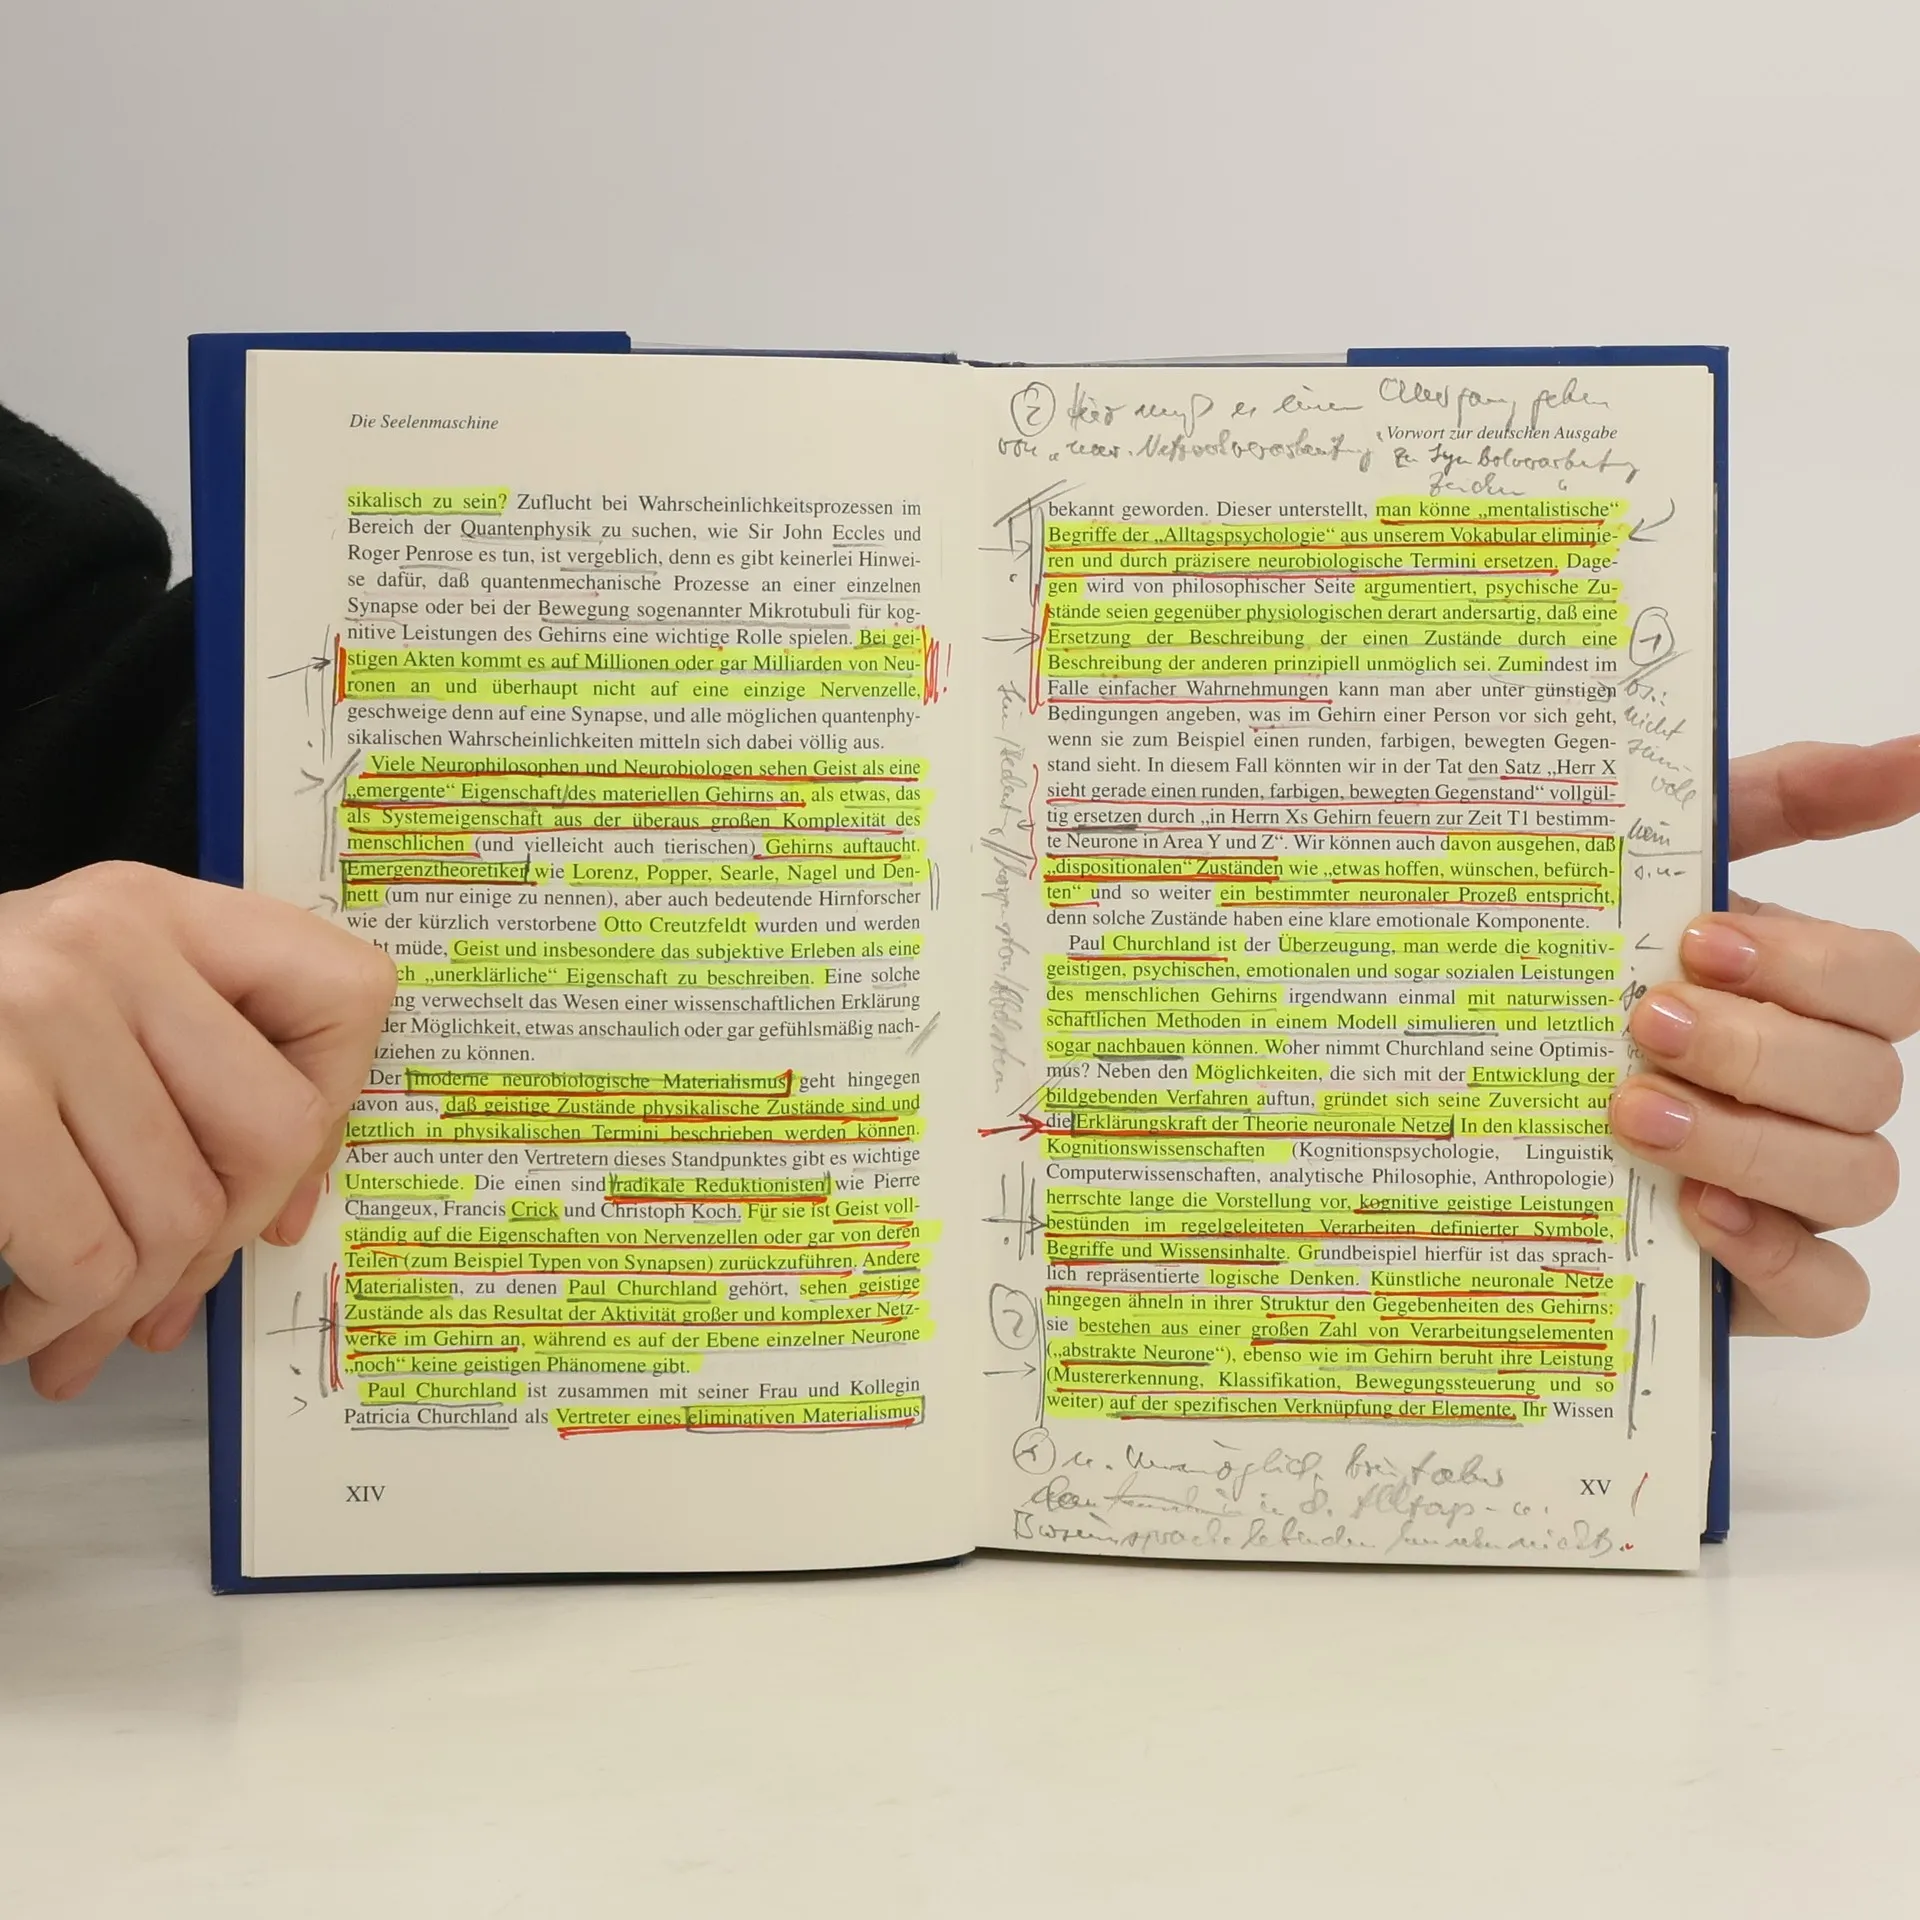 Die Seelenmaschine
sikalisch zu sein? Zuflucht bei Wahrscheinlichkeitsprozessen im
Bereich der Quantenphysik zu suchen, wie Sir John Eccles und
Roger Penrose es tun, ist vergeblich, denn es gibt keinerlei Hinwei-
se dafür, daß quantenmechanische Prozesse an einer einzelnen
Synapse oder bei der Bewegung sogenannter Mikrotubuli für kog-
nitive Leistungen des Gehirns eine wichtige Rolle spielen. Bei gei-
stigen Akten kommt es auf Millionen oder gar Milliarden von Neu-
ronen an und überhaupt nicht auf eine einzige Nervenzelle,
geschweige denn auf eine Synapse, und alle möglichen quantenphy-
sikalischen Wahrscheinlichkeiten mitteln sich dabei völlig aus.
Viele Neurophilosophen und Neurobiologen sehen Geist als eine
„emergente“ Eigenschaft des materiellen Gehirns an, als etwas, das
als Systemeigenschaft aus der überaus großen Komplexität des
menschlichen (und vielleicht auch tierischen) Gehirns auftaucht.
Emergenztheoretiker wie Lorenz, Popper, Searle, Nagel und Den-
nett (um nur einige zu nennen), aber auch bedeutende Hirnforscher
wie der kürzlich verstorbene Otto Creutzfeldt wurden und werden
ht müde, Geist und insbesondere das subjektive Erleben als eine
ch „unerklärliche“ Eigenschaft zu beschreiben. Eine solche
ng verwechselt das Wesen einer wissenschaftlichen Erklärung
der Möglichkeit, etwas anschaulich oder gar gefühlsmäßig nach-
ziehen zu können.
Der moderne neurobiologische Materialismus geht hingegen
davon aus, daß geistige Zustände physikalische Zustände sind und
letztlich in physikalischen Termini beschrieben werden können.
Aber auch unter den Vertretern dieses Standpunktes gibt es wichtige
Unterschiede. Die einen sind radikale Reduktionisten wie Pierre
Changeux, Francis Crick und Christoph Koch. Für sie ist Geist voll-
ständig auf die Eigenschaften von Nervenzellen oder gar von deren
Teilen (zum Beispiel Typen von Synapsen) zurückzuführen. Andere
Materialisten, zu denen Paul Churchland gehört, sehen geistige
Zustände als das Resultat der Aktivität großer und komplexer Netz-
werke im Gehirn an, während es auf der Ebene einzelner Neurone
„noch“ keine geistigen Phänomene gibt.
Paul Churchland ist zusammen mit seiner Frau und Kollegin
Patricia Churchland als Vertreter eines eliminativen Materialismus
XIV
2 Hier muß es einen geben
von
Vorwort zur deutschen Ausgabe
zu Symbolverarbeitung
bekannt geworden. Dieser unterstellt, man könne „mentalistische“
Begriffe der „Alltagspsychologie“ aus unserem Vokabular eliminie-
ren und durch präzisere neurobiologische Termini ersetzen. Dage-
gen wird von philosophischer Seite argumentiert, psychische Zu-
stände seien gegenüber physiologischen derart andersartig, daß eine
Ersetzung der Beschreibung der einen Zustände durch eine
Beschreibung der anderen prinzipiell unmöglich sei. Zumindest im
Falle einfacher Wahrnehmungen kann man aber unter günstigen
Bedingungen angeben, was im Gehirn einer Person vor sich geht,
wenn sie zum Beispiel einen runden, farbigen, bewegten Gegen-
stand sieht. In diesem Fall könnten wir in der Tat den Satz „Herr X
sieht gerade einen runden, farbigen, bewegten Gegenstand“ vollgül-
tig ersetzen durch „in Herrn Xs Gehirn feuern zur Zeit T1 bestimm-
te Neurone in Area Y und Z“. Wir können auch davon ausgehen, daß
„dispositionalen“ Zuständen wie „etwas hoffen, wünschen, befürch-
ten“ und so weiter ein bestimmter neuronaler Prozeß entspricht,
denn solche Zustände haben eine klare emotionale Komponente.
Paul Churchland ist der Überzeugung, man werde die kognitiv-
geistigen, psychischen, emotionalen und sogar sozialen Leistungen
des menschlichen Gehirns irgendwann einmal mit naturwissen-
schaftlichen Methoden in einem Modell simulieren und letztlich
sogar nachbauen können. Woher nimmt Churchland seine Optimis-
mus? Neben den Möglichkeiten, die sich mit der Entwicklung der
bildgebenden Verfahren auftun, gründet sich seine Zuversicht auf
die Erklärungskraft der Theorie neuronale Netze. In den klassischen
Kognitionswissenschaften (Kognitionspsychologie, Linguistik
Computerwissenschaften, analytische Philosophie, Anthropologie)
herrschte lange die Vorstellung vor, kognitive geistige Leistungen
bestünden im regelgeleiteten Verarbeiten definierter Symbole,
Begriffe und Wissensinhalte. Grundbeispiel hierfür ist das sprach-
lich repräsentierte logische Denken. Künstliche neuronale Netze
hingegen ähneln in ihrer Struktur den Gegebenheiten des Gehirns:
sie bestehen aus einer großen Zahl von Verarbeitungselementen
(„abstrakte Neurone“), ebenso wie im Gehirn beruht ihre Leistung
(Mustererkennung, Klassifikation, Bewegungssteuerung und so
weiter) auf der spezifischen Verknüpfung der Elemente. Ihr Wissen
1
nicht
sinn
voll
2
XV